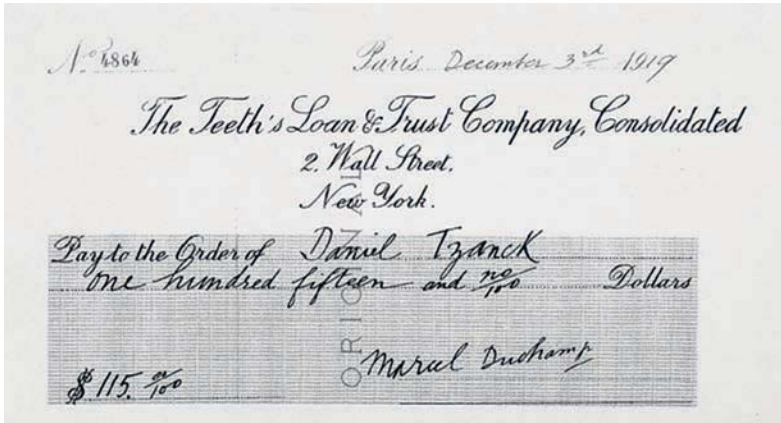 No 4864
Paris December 3rd 1919
The Teeth's Loan & Trust Company, Consolidated
2. Wall Street,
New York.
ORIGINAL
Pay to the Order of Daniel Tzanck
one hundred fifteen and no/100 Dollars
Marcel Duchamp
$ 115. no/100